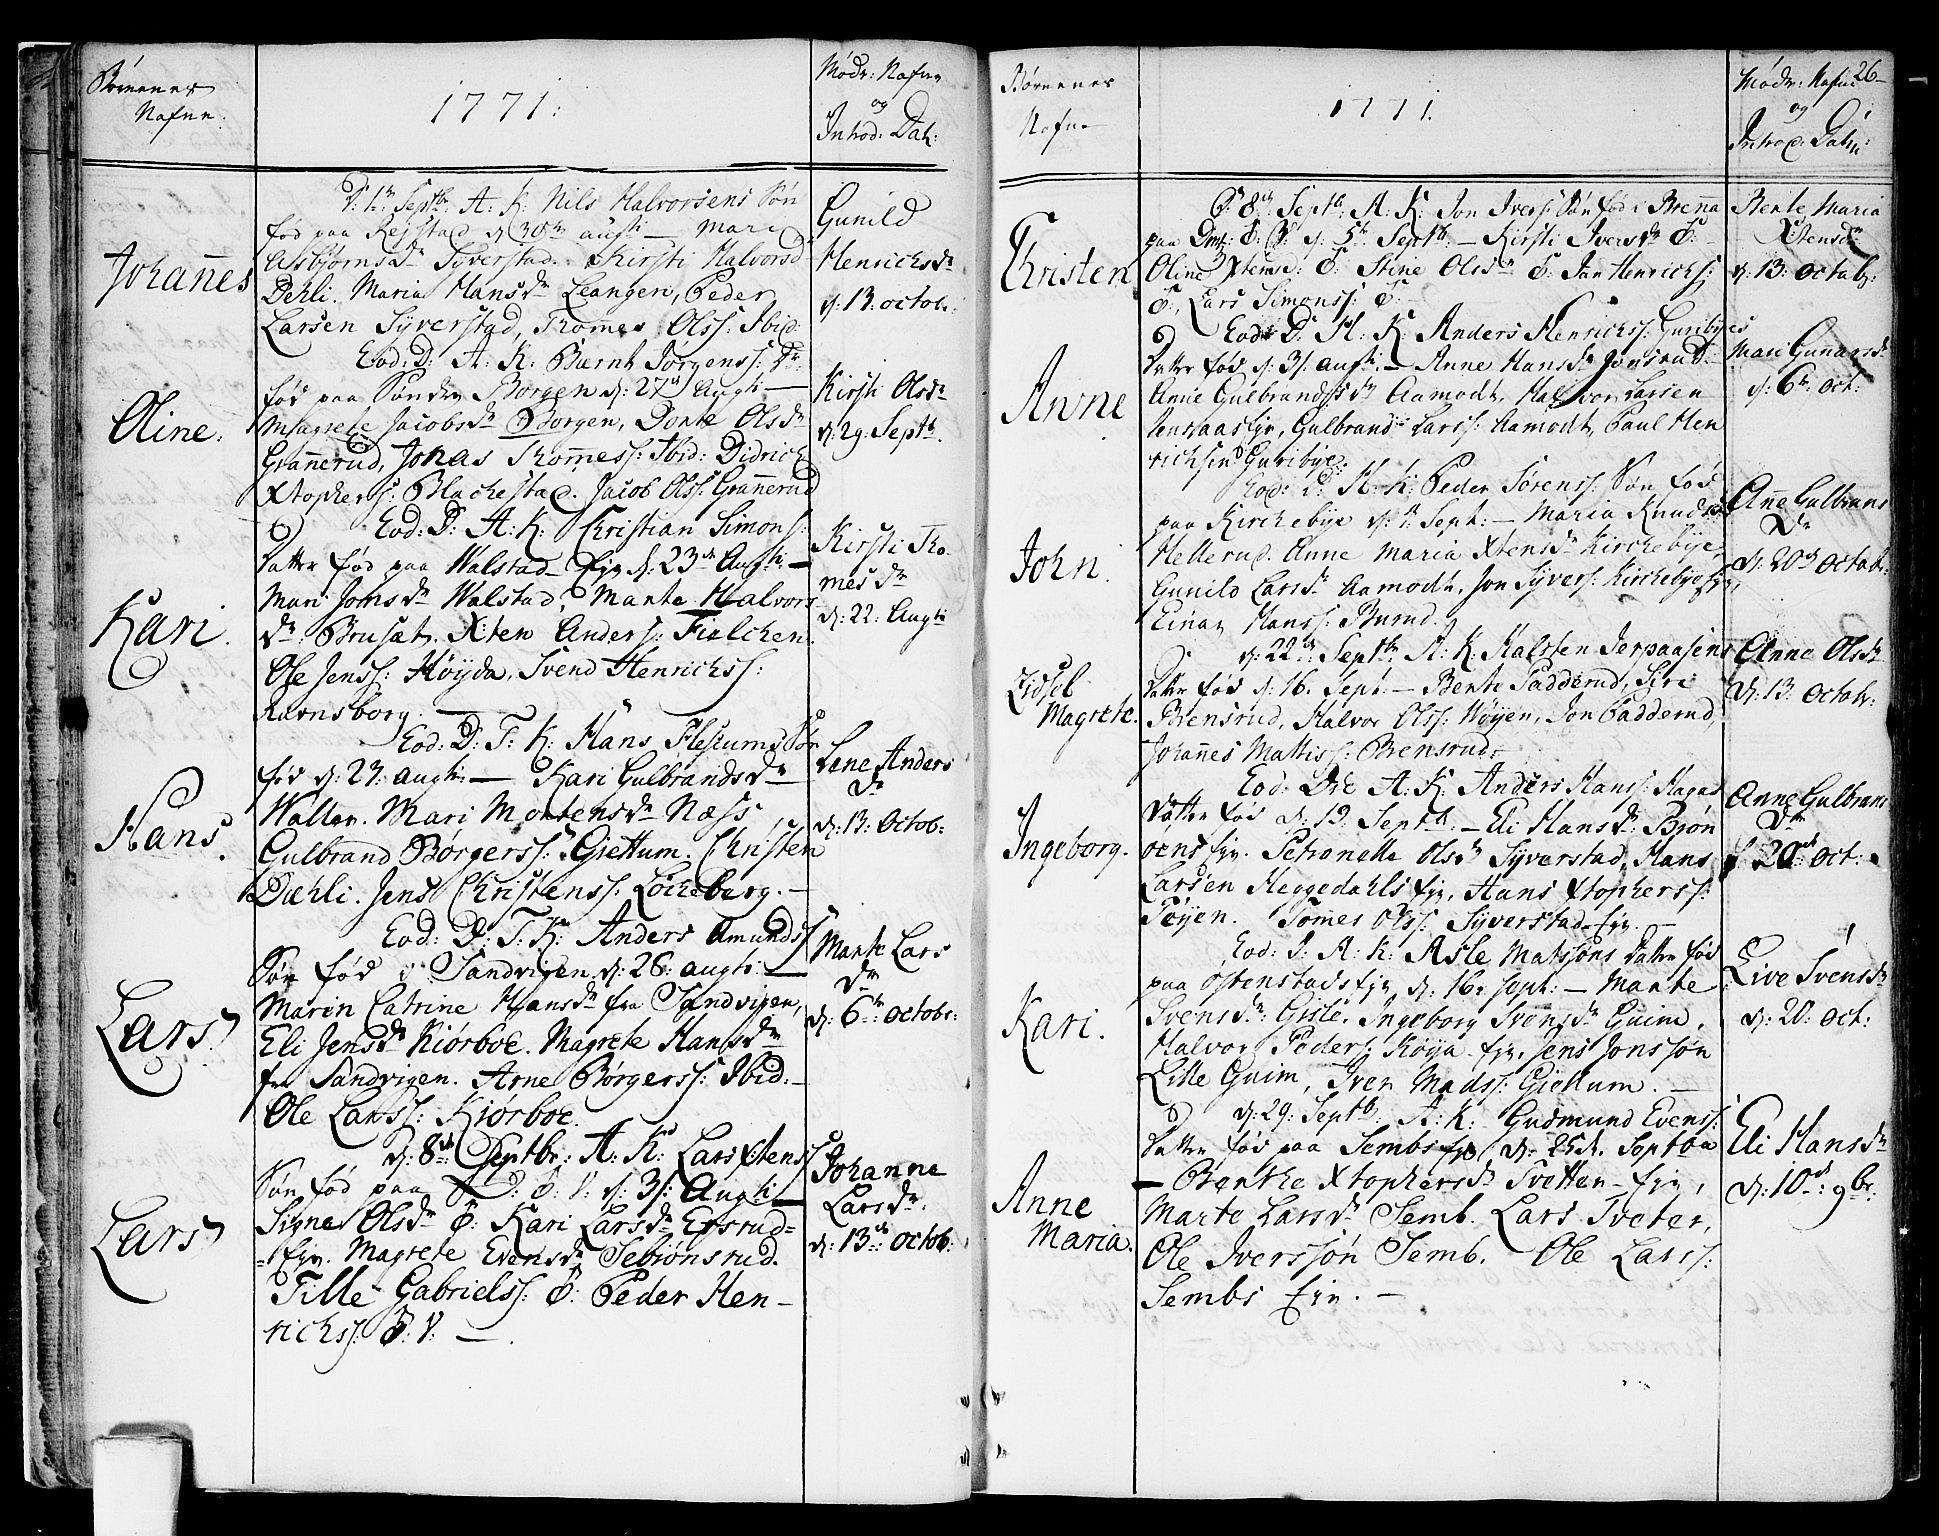 Børnenes
Nafne.
1771:
Mødr: Nafne
og
Introd: Dat:
Johañes
D: 1: Septbr A: K: Nils Halvorsens Søn
fød paa Reistad d: 30 augti — Mari
Asbjørnsdr Syverstad. Kirsti Halvorsd
Dehli. Maria Hansdr Leangen, Peder
Larsen Syverstad, Thomes Olss: Ibid:
Gunild
Henrichsdr
d: 13: octob:
Oline.
Eod: D: A: K: Bernt Jørgenss: Dr
fød paa Sønder Borgen d: 27 Augti —
Magrete Jacobsdr Borgen, Dorte Olsdr
Grañerud, Jonas Thomess: Ibid: Didrich
Xtophers: Blachestad. Jacob Olss: Grañerud
Kirsti Olsdr
d: 29: Septb.
Kari.
Eod: D: A: K: Christian Simons:
Datter fød paa Walstad Eje d: 23 Augti —
Mari Jonsdr Walstad, Marte Halvors
dr Brusæt. Xten Anders: Fialchen
Ole Jenss: Høyda, Svend Henrichss:
Ravnsborg.
Kirsti Tho-
mesdr
d: 22: Augti
Hans.
Eod: D: T: K: Hans Fleskums Søn
fød d: 27: augti — Kari Gulbrandsdr
Waller. Mari Mortensdr Næss
Gulbrand Børgerss: Giettum. Christen
Dæhli. Jens Christenss: Løcheberg. —
Lene Anders
Dr
d: 13: Octob:
Lars
Eod: D: T: K: Anders Amundss
Søn fød i Sandvigen d: 26: augti —
Maren Catrine Hansdr fra Sandvigen,
Eli Jensdr Kiørboe. Magrete Hansdr
fra Sandvigen. Arne Børgerss: Ibid. —
Ole Larss: Kiørboe.
Marte Lars
dr
d: 6: octobr:
Lars
d: 8 Septbr: A: K: Lars Xtenss
Søn fød paa D: B: V: d: 31: Augti
Signe Olsdr B: Kari Larsdr Ersrud=
=Eje. Magrete Evensdr Sebiønsrud.
Tille Gabrielss: B: Peder Hen-
richss: B: V: —
Johanne
Larsdr.
d: 13: octob:
Børnenes
Nafne
1771.
26
Mødr: Nafne
og
Introd: Datu:
Christen
D: 8: Septb: A: K: Jon Ivers: Søn fød i Brenna
paa d: 5 Septb — Kirsti Iversdr B:
Oline Xtens: B: Stine Olsdr B: Jan Henrichs:
B:, Lars Simonss: B: —
Bente Maria
Xtensdr
d: 13: octobr:
Anne
Eod: D: A: K: Anders Henrichss: Guribyes
Datter fød d: 31 augti. — Anne Hansdr Jonsrud.
Anne Gulbrandsdr Aamodt, Halvor Larsen
Gulbrand Larss: Aamodt, Paul Hen
richsen Guribye.
Mari Gunnersdr
d: 6 oct:
John.
Eod: D: A: K: Peder Sørenss: Søn fød
paa Kirchebye d: 1: Sept: — Maria Knudsdr
Hellerud. Anne Maria Xtensdr Kirchebye,
Gunild Larsdr Aamodt, Jon Syvers: Kirchebyeeje,
Einar Hanss: Burud.
Añe Gulbrans
Dr
d: 20 octob:
Zidsel
Magrete.
d: 22: Septbr A: K: Halsten Jerpaasens
Datter fød d: 16. Sept: — Bente Padderud, Siri
Brensrud, Halvor Olss: Høyen, Jon Padderud,
Johañes Mattiss: Brensrud.
Anne Olsdr
d: 13: octobr:
Ingeborg.
Eod: Die A: K: Anders Hanss: Hagas
Datter fød d: 19: Septb. — Eli Hansdr: Bjøn
oens eje. Petronelle Olsdr Syverstad, Hans
Larsen Heggedahls eje, Hans Xtopherss:
Tøyen. Tomes Olss: Syverstad Eje. —
Anne Gulbrans
Dr
d: 20 oct:
Kari.
Eod: D: A: K: Asle Matsøns Datter fød
paa Østenstads eje d: 16: sept: — Marte
Svensdr: Gisle. Ingeborg Svensdr Guim,
Halvor Peders: Høya eje, Jens Jonssøn
Lille Guim, Iver Madss: Giettum. —
Live Svensdr
d: 20: oct:
Anne
Maria.
d: 29: Septb: A: K: Gudmund Evenss:
Datter fød paa Sembs eje d: 25de. Septbr
— Benthe Xtophersdr Tvetten Eje,
Marte Larsdr Semb. Lars Tveter,
Ole Iverssøn Semb. Ole Larss:
Sembs Eje. —
Eli Hansdr
d: 10: 9br: